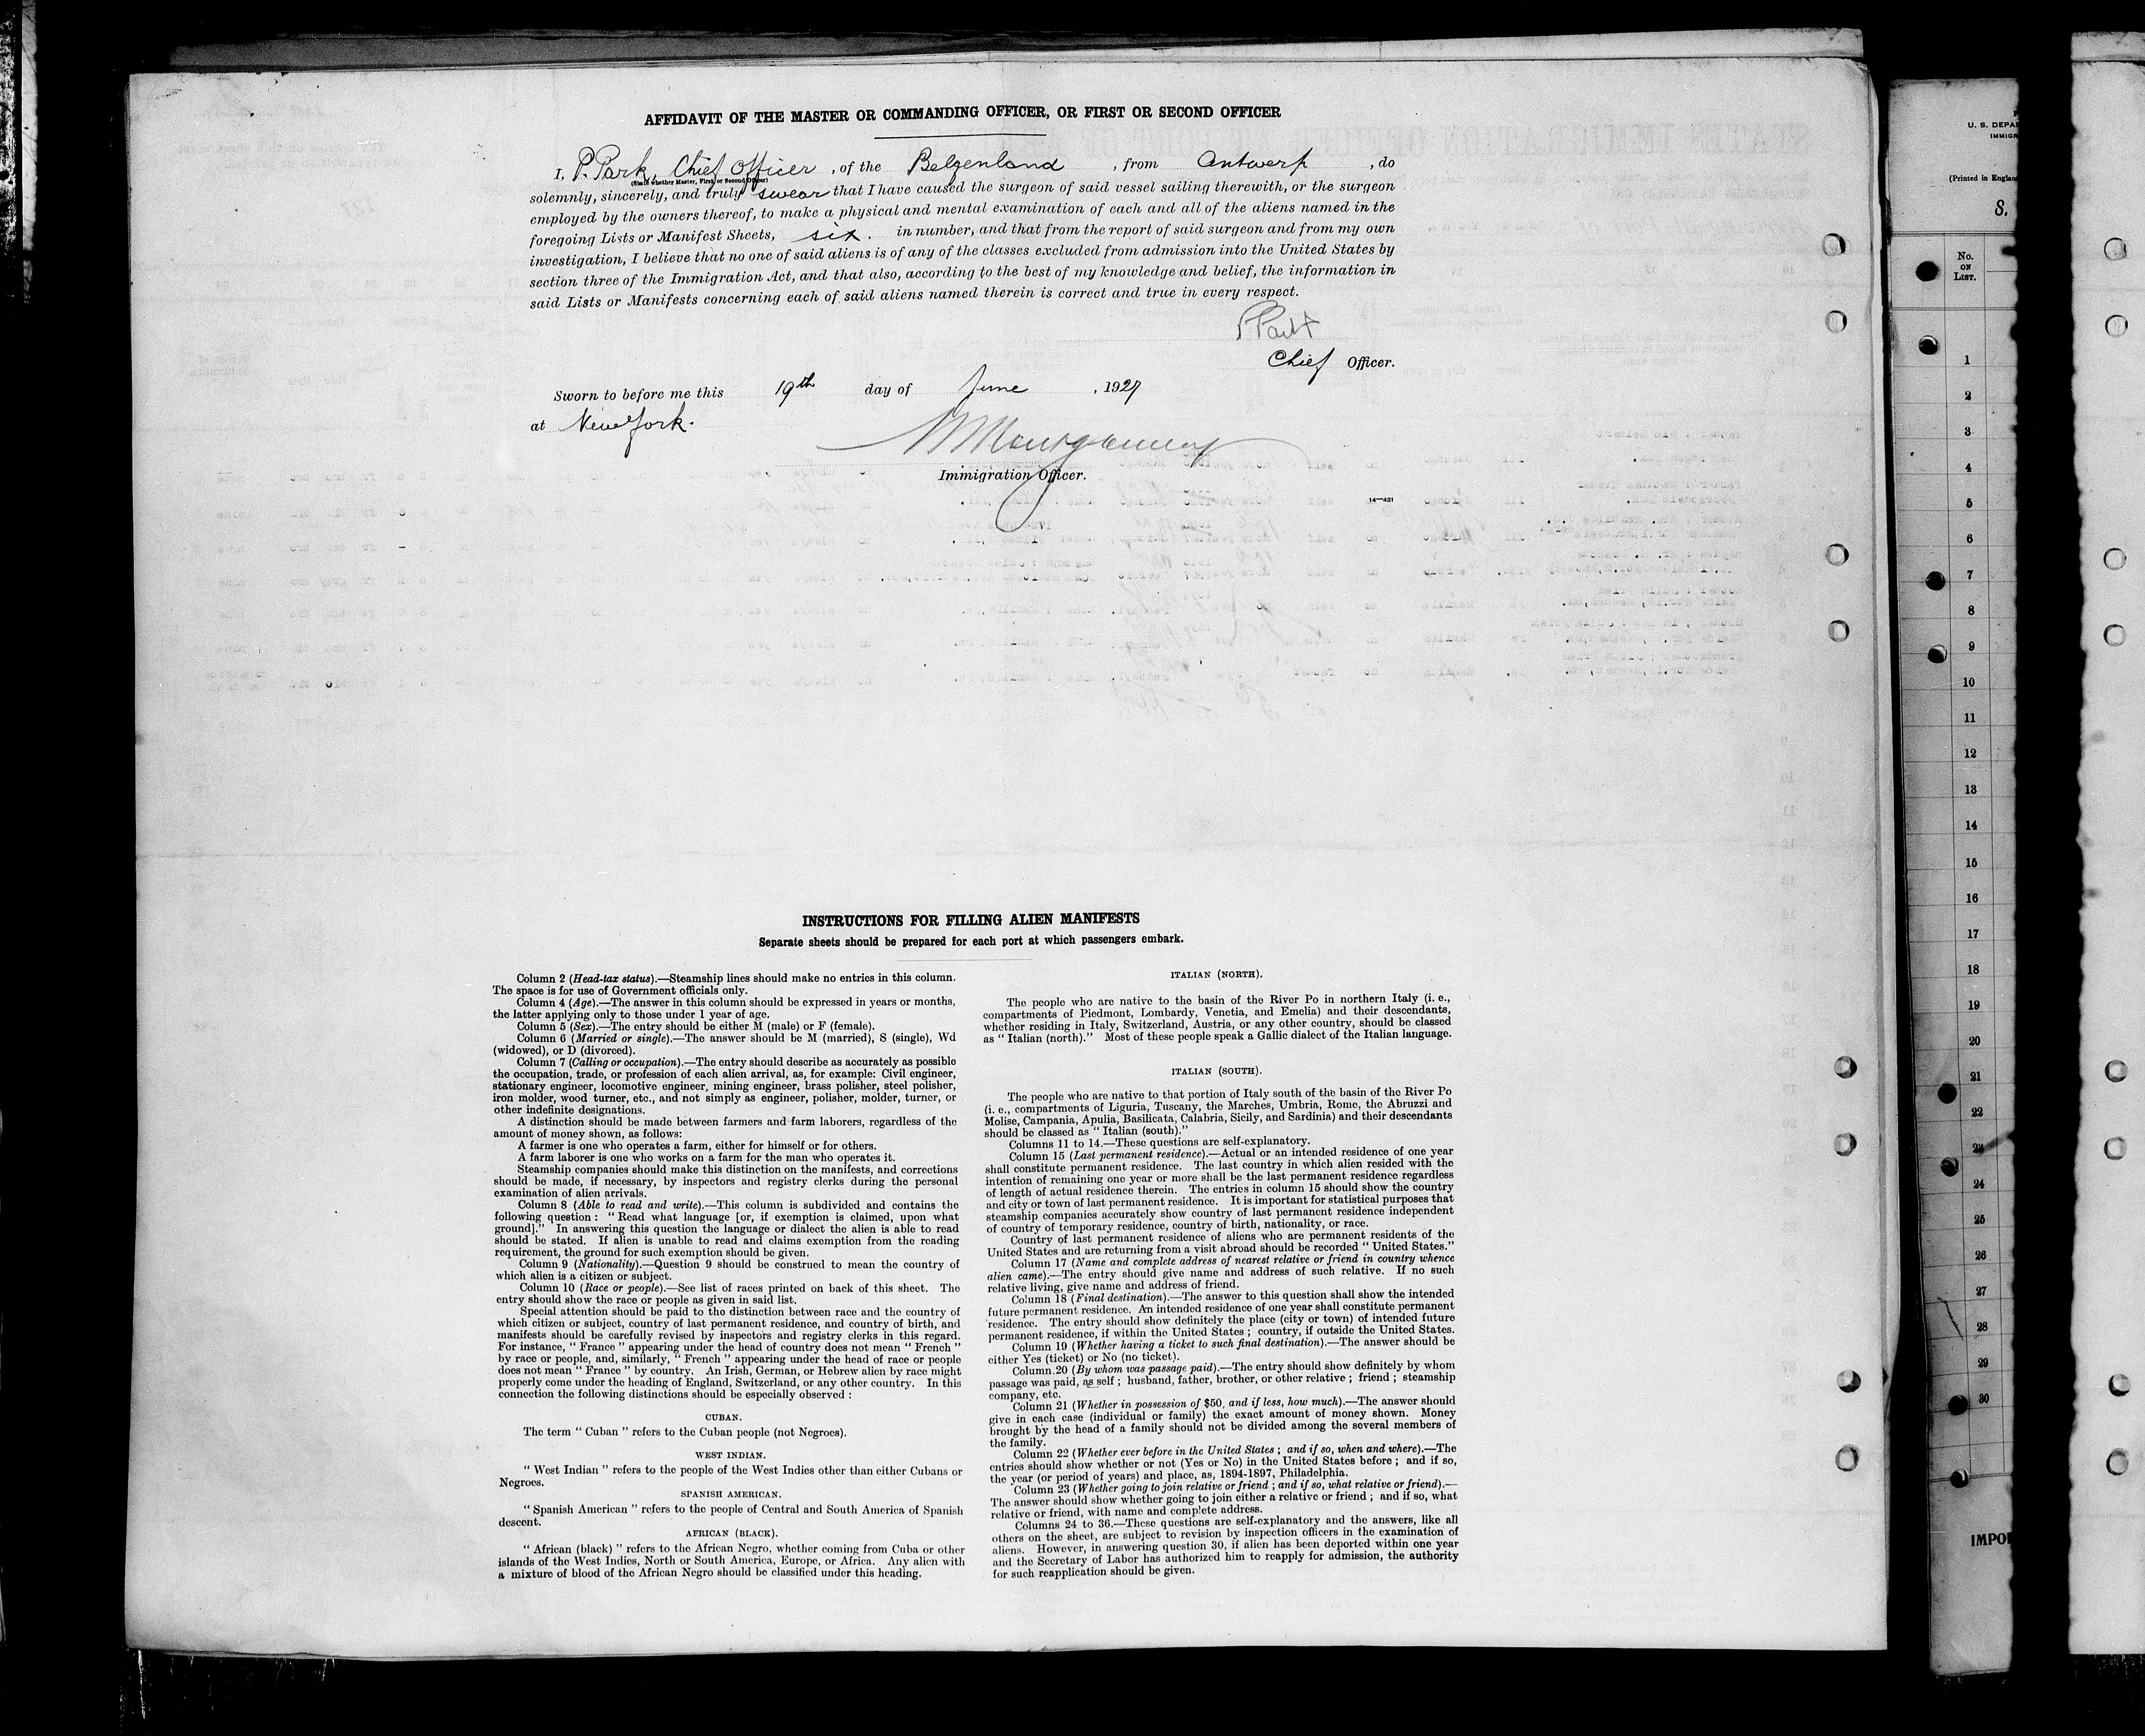 AFFIDAVIT OF THE MASTER OR COMMANDING OFFICER, OR FIRST OR SECOND OFFICER
I, P. Park, Chief Officer, of the Belgenland, from Antwerp, do
(State whether Master, First, or Second Officer)
solemnly, sincerely, and truly swear that I have caused the surgeon of said vessel sailing therewith, or the surgeon
employed by the owners thereof, to make a physical and mental examination of each and all of the aliens named in the
foregoing Lists or Manifest Sheets, six. in number, and that from the report of said surgeon and from my own
investigation, I believe that no one of said aliens is of any of the classes excluded from admission into the United States by
section three of the Immigration Act, and that also, according to the best of my knowledge and belief, the information in
said Lists or Manifests concerning each of said aliens named therein is correct and true in every respect.
P Park
Chief Officer.
Sworn to before me this 19th day of June, 1927
at New York.
Montgomery
Immigration Officer.
14—431
INSTRUCTIONS FOR FILLING ALIEN MANIFESTS
Separate sheets should be prepared for each port at which passengers embark.
Column 2 (Head-tax status).—Steamship lines should make no entries in this column.
The space is for use of Government officials only.
Column 4 (Age).—The answer in this column should be expressed in years or months,
the latter applying only to those under 1 year of age.
Column 5 (Sex).—The entry should be either M (male) or F (female).
Column 6 (Married or single).—The answer should be M (married), S (single), Wd
(widowed), or D (divorced).
Column 7 (Calling or occupation).—The entry should describe as accurately as possible
the occupation, trade, or profession of each alien arrival, as, for example: Civil engineer,
stationary engineer, locomotive engineer, mining engineer, brass polisher, steel polisher,
iron molder, wood turner, etc., and not simply as engineer, polisher, molder, turner, or
other indefinite designations.
A distinction should be made between farmers and farm laborers, regardless of the
amount of money shown, as follows:
A farmer is one who operates a farm, either for himself or for others.
A farm laborer is one who works on a farm for the man who operates it.
Steamship companies should make this distinction on the manifests, and corrections
should be made, if necessary, by inspectors and registry clerks during the personal
examination of alien arrivals.
Column 8 (Able to read and write).—This column is subdivided and contains the
following question : “ Read what language [or, if exemption is claimed, upon what
ground].” In answering this question the language or dialect the alien is able to read
should be stated. If alien is unable to read and claims exemption from the reading
requirement, the ground for such exemption should be given.
Column 9 (Nationality).—Question 9 should be construed to mean the country of
which alien is a citizen or subject.
Column 10 (Race or people).—See list of races printed on back of this sheet. The
entry should show the race or people as given in said list.
Special attention should be paid to the distinction between race and the country of
which citizen or subject, country of last permanent residence, and country of birth, and
manifests should be carefully revised by inspectors and registry clerks in this regard.
For instance, “ France ” appearing under the head of country does not mean “ French ”
by race or people, and, similarly, “ French ” appearing under the head of race or people
does not mean “ France ” by country. An Irish, German, or Hebrew alien by race might
properly come under the heading of England, Switzerland, or any other country. In this
connection the following distinctions should be especially observed :
CUBAN.
The term “ Cuban ” refers to the Cuban people (not Negroes).
WEST INDIAN.
“ West Indian ” refers to the people of the West Indies other than either Cubans or
Negroes.
SPANISH AMERICAN.
“ Spanish American ” refers to the people of Central and South America of Spanish
descent.
AFRICAN (BLACK).
“ African (black) ” refers to the African Negro, whether coming from Cuba or other
islands of the West Indies, North or South America, Europe, or Africa. Any alien with
a mixture of blood of the African Negro should be classified under this heading.
ITALIAN (NORTH).
The people who are native to the basin of the River Po in northern Italy (i. e.,
compartments of Piedmont, Lombardy, Venetia, and Emelia) and their descendants,
whether residing in Italy, Switzerland, Austria, or any other country, should be classed
as “ Italian (north).” Most of these people speak a Gallic dialect of the Italian language.
ITALIAN (SOUTH).
The people who are native to that portion of Italy south of the basin of the River Po
(i. e., compartments of Liguria, Tuscany, the Marches, Umbria, Rome, the Abruzzi and
Molise, Campania, Apulia, Basilicata, Calabria, Sicily, and Sardinia) and their descendants
should be classed as “ Italian (south).”
Columns 11 to 14.—These questions are self-explanatory.
Column 15 (Last permanent residence).—Actual or an intended residence of one year
shall constitute permanent residence. The last country in which alien resided with the
intention of remaining one year or more shall be the last permanent residence regardless
of length of actual residence therein. The entries in column 15 should show the country
and city or town of last permanent residence. It is important for statistical purposes that
steamship companies accurately show country of last permanent residence independent
of country of temporary residence, country of birth, nationality, or race.
Country of last permanent residence of aliens who are permanent residents of the
United States and are returning from a visit abroad should be recorded “ United States.”
Column 17 (Name and complete address of nearest relative or friend in country whence
alien came).—The entry should give name and address of such relative. If no such
relative living, give name and address of friend.
Column 18 (Final destination).—The answer to this question shall show the intended
future permanent residence. An intended residence of one year shall constitute permanent
residence. The entry should show definitely the place (city or town) of intended future
permanent residence, if within the United States ; country, if outside the United States.
Column 19 (Whether having a ticket to such final destination).—The answer should be
either Yes (ticket) or No (no ticket).
Column 20 (By whom was passage paid).—The entry should show definitely by whom
passage was paid, as self ; husband, father, brother, or other relative ; friend ; steamship
company, etc.
Column 21 (Whether in possession of $50, and if less, how much).—The answer should
give in each case (individual or family) the exact amount of money shown. Money
brought by the head of a family should not be divided among the several members of
the family.
Column 22 (Whether ever before in the United States ; and if so, when and where).—The
entries should show whether or not (Yes or No) in the United States before ; and if so,
the year (or period of years) and place, as, 1894-1897, Philadelphia.
Column 23 (Whether going to join relative or friend ; and if so, what relative or friend).—
The answer should show whether going to join either a relative or friend ; and if so, what
relative or friend, with name and complete address.
Columns 24 to 36.—These questions are self-explanatory and the answers, like all
others on the sheet, are subject to revision by inspection officers in the examination of
aliens. However, in answering question 30, if alien has been deported within one year
and the Secretary of Labor has authorized him to reapply for admission, the authority
for such reapplication should be given.
U. S. DEPA
IMMIGR
(Printed in Englan
S.
No.
ON
LIST.
1
2
3
4
5
6
7
8
9
10
11
12
13
14
15
16
17
18
19
20
21
22
23
24
25
26
27
28
29
30
IMPO